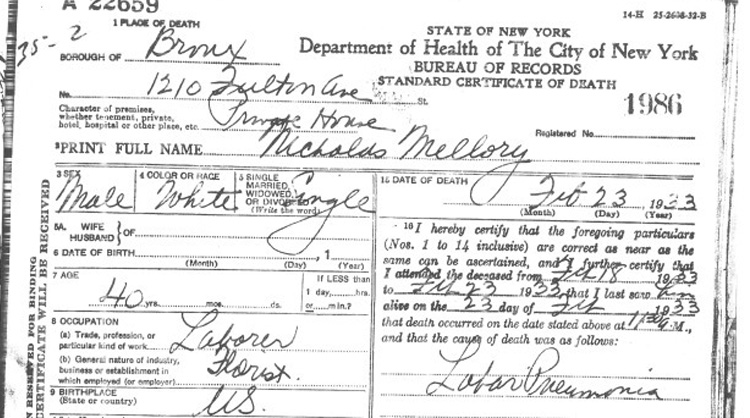 A 22659
14-H 25-2628-32-B
1 PLACE OF DEATH
STATE OF NEW YORK
BOROUGH OF Bronx
Department of Health of The City of New York
BUREAU OF RECORDS
No. 1210 Fulton Ave St.
STANDARD CERTIFICATE OF DEATH
Character of premises,
whether tenement, private,
hotel, hospital or other place, etc. Private House
1986
Registered No.
2 PRINT FULL NAME Nicholas Mellory
3 SEX Male
4 COLOR OR RACE White
5 SINGLE
MARRIED,
WIDOWED,
OR DIVORCED
(Write the word) Single
15 DATE OF DEATH Feb 23 , 1933
(Month) (Day) (Year)
5A. WIFE
HUSBAND } OF
6 DATE OF BIRTH , 1
(Month) (Day) (Year)
7 AGE
40 yrs. mos. ds.
If LESS than
1 day, hrs.
or min.?
8 OCCUPATION
(a) Trade, profession, or
particular kind of work Laborer
(b) General nature of industry,
business or establishment in
which employed (or employer) Florist
9 BIRTHPLACE
(State or country) U.S.
16 I hereby certify that the foregoing particulars
(Nos. 1 to 14 inclusive) are correct as near as the
same can be ascertained, and I further certify that
I attended the deceased from Feb 18 1933
to Feb 23 1933, that I last saw him
alive on the 23 day of Feb 1933
that death occurred on the date stated above at M.,
and that the cause of death was as follows:
Lobar Pneumonia
RESERVED FOR BINDING
CERTIFICATE WILL BE RECEIVED